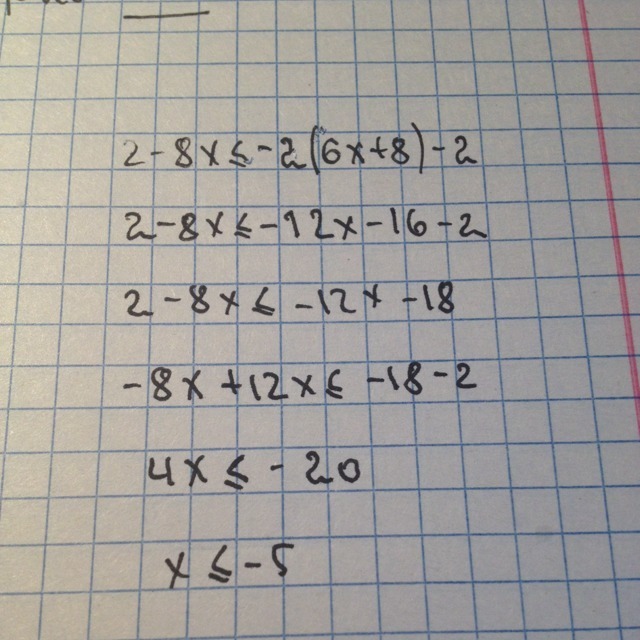 2-8x≤-2(6x+8)-2
2-8x≤-12x-16-2
2-8x≤-12x-18
-8x+12x≤-18-2
4x≤-20
x≤-5